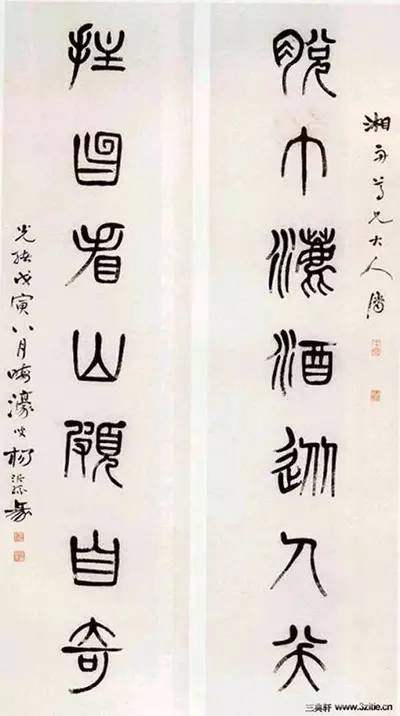 湘舟尊兄大人屬
脫巾漉酒從人笑
拄笏看山頗自奇
光緒戊寅八月晦濠叟楊沂孫篆
三典轩 www.3zitie.cn